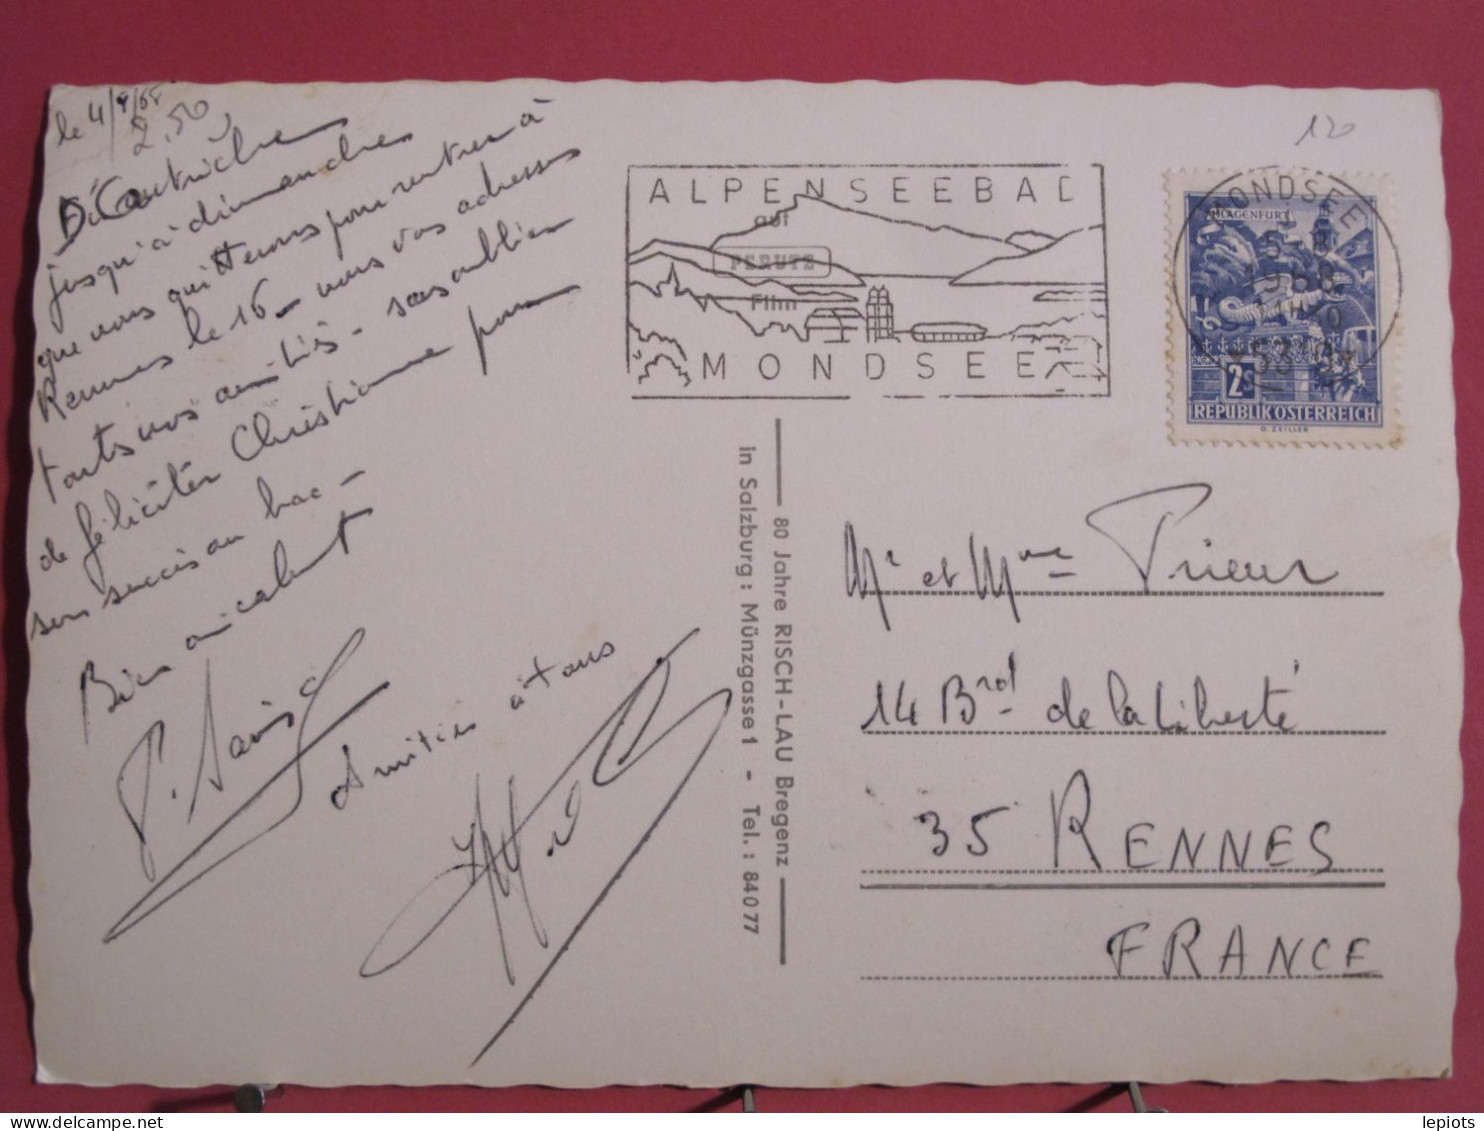 le 4/8/68
2,50
D'Autriche
jusqu'à dimanche
que nous quitterons pour rentrer à
Rennes le 16 - nous vous adressons
toutes nos amitiés - sans oublier
de féliciter Christiane pour
son succès au bac -
Bien amicalement
Amitiés à tous
120
ALPENSEEBAD
auf
PERUTZ
Film
MONDSEE
MONDSEE
5-8
1968
5310
KLAGENFURT
2S
REPUBLIK ÖSTERREICH
G. ZEILLER
80 Jahre RISCH-LAU Bregenz
in Salzburg: Münzgasse 1 - Tel.: 84077
Mr et Mme Prieur
14 Brd de la Liberté
35 RENNES
FRANCE
lepiots